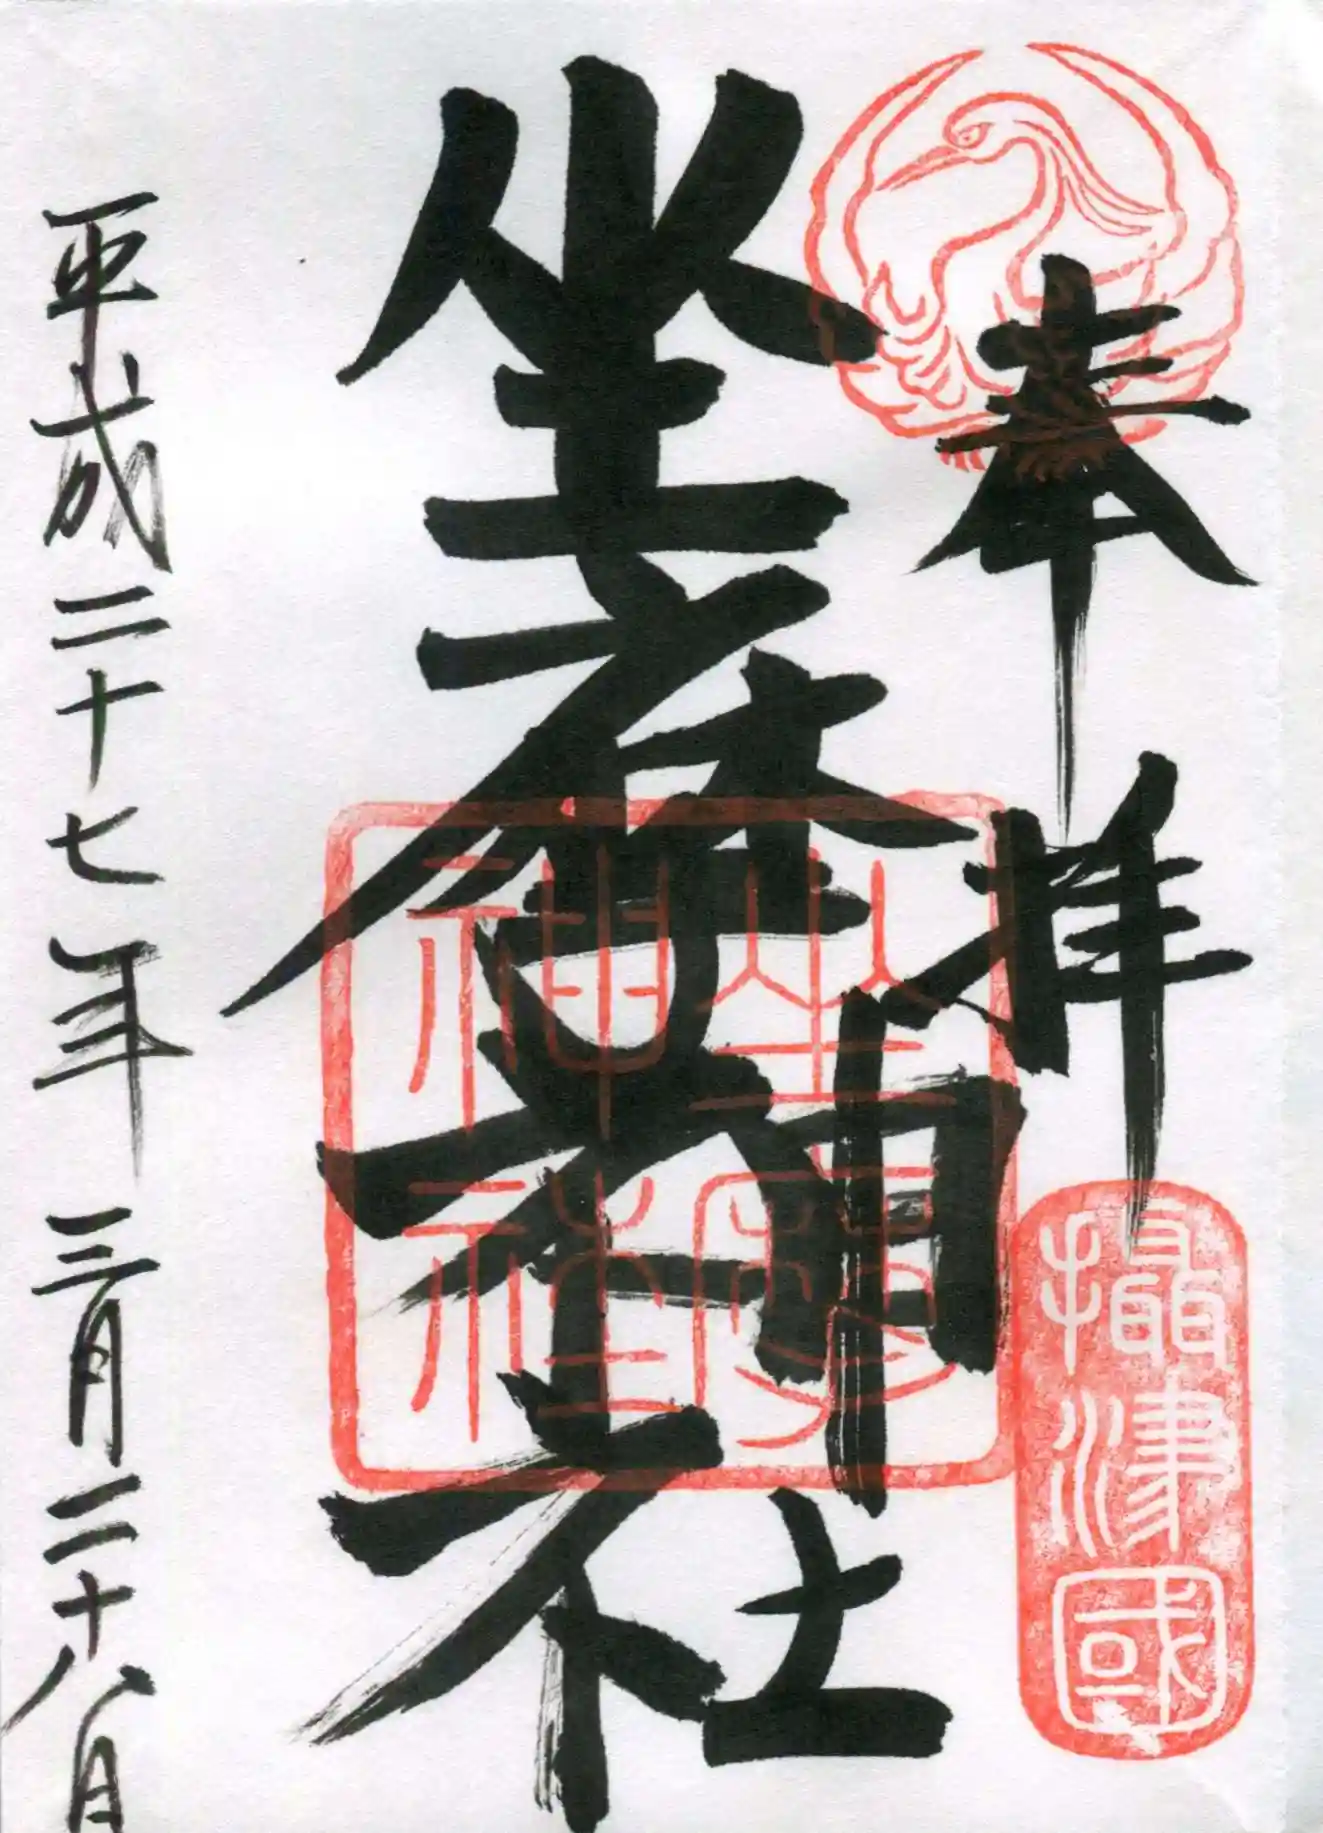 奉拝
攝津國
坐摩神社
坐摩
神社
平成二十七年三月二十八日